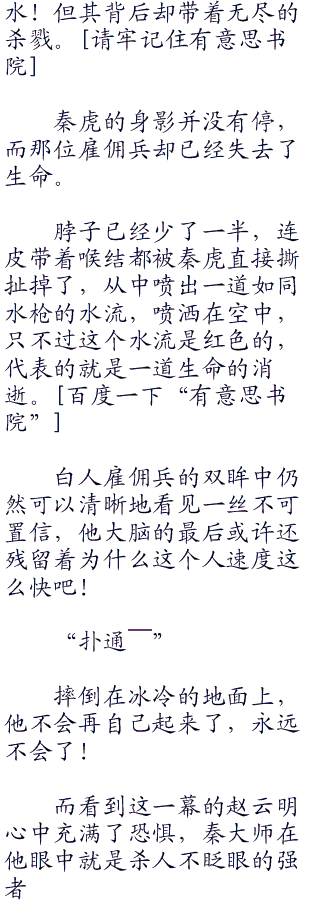 水！但其背后却带着无尽的
杀戮。[请牢记住有意思书
院]
秦虎的身影并没有停，
而那位雇佣兵却已经失去了
生命。
脖子已经少了一半，连
皮带着喉结都被秦虎直接撕
扯掉了，从中喷出一道如同
水枪的水流，喷洒在空中，
只不过这个水流是红色的，
代表的就是一道生命的消
逝。[百度一下“有意思书
院”]
白人雇佣兵的双眸中仍
然可以清晰地看见一丝不可
置信，他大脑的最后或许还
残留着为什么这个人速度这
么快吧！
“扑通一”
摔倒在冰冷的地面上，
他不会再自己起来了，永远
不会了！
而看到这一幕的赵云明
心中充满了恐惧，秦大师在
他眼中就是杀人不眨眼的强
者